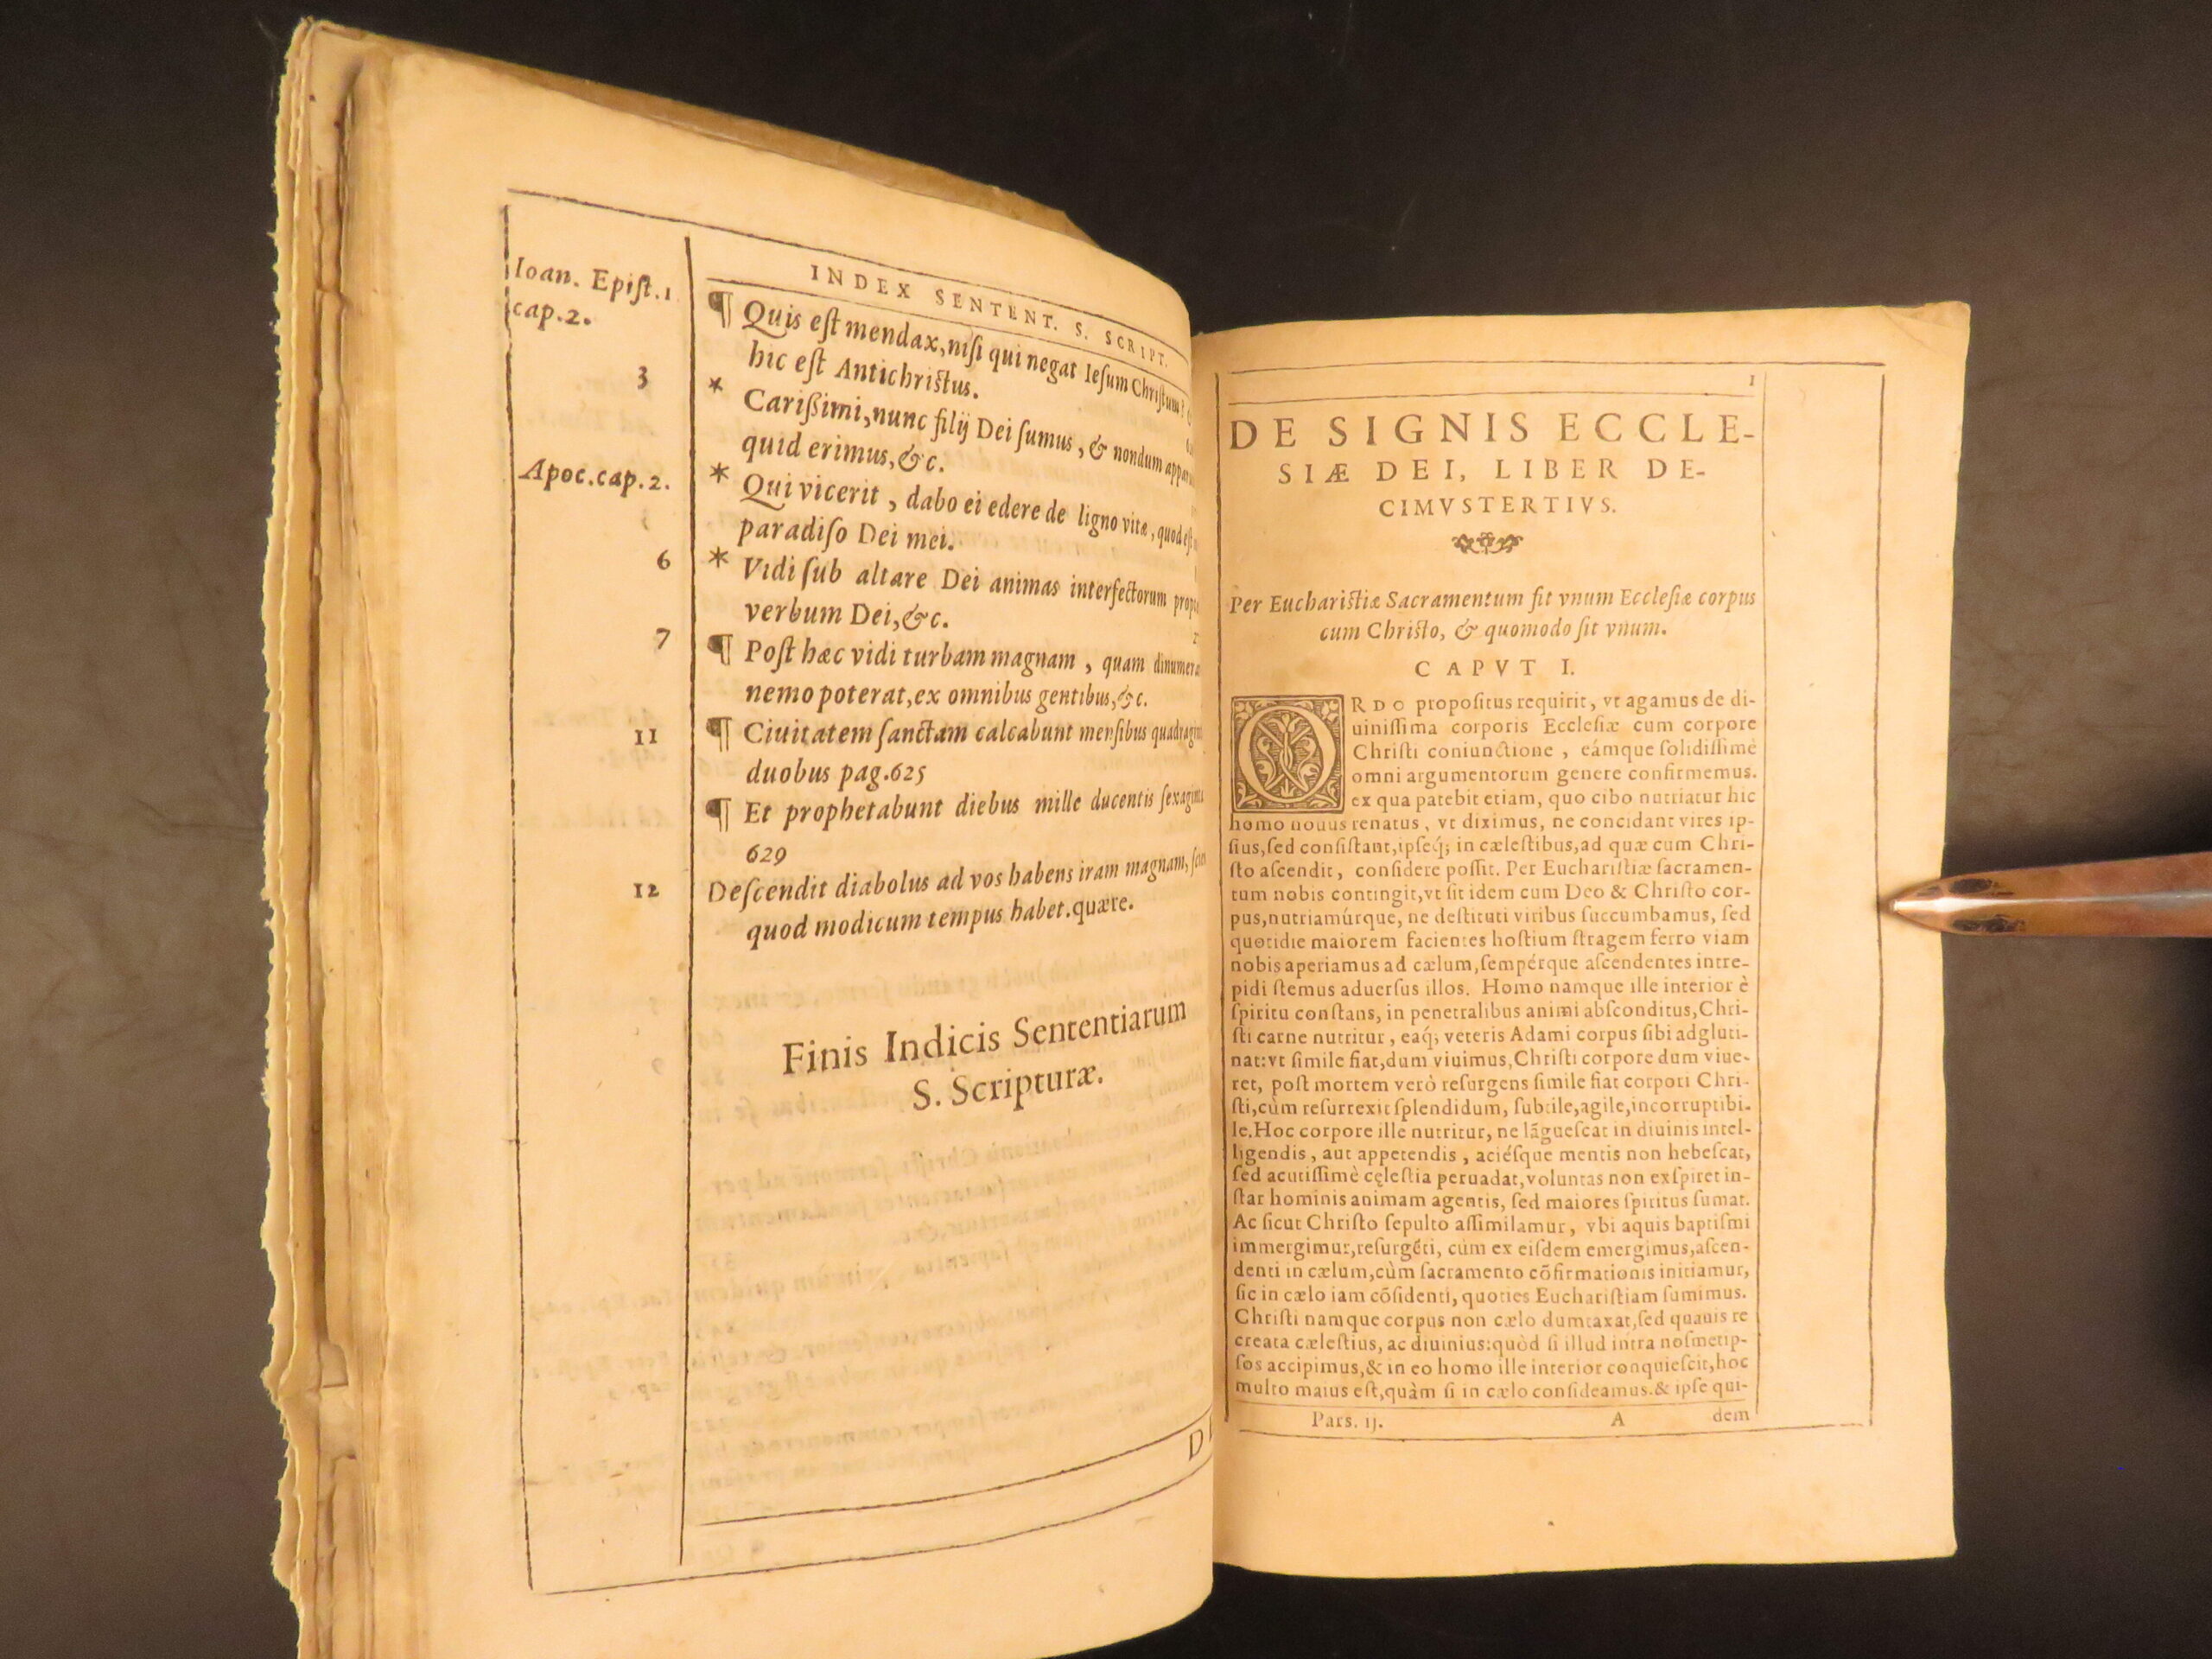 INDEX SENTENT. S. SCRIPT.
Ioan. Epiſt.1
cap.2.
¶ Quis eſt mendax,niſi qui negat Ieſum Chriſtum?
hic eſt Antichriſtus.
3
* Carißimi,nunc filij Dei ſumus, & nondum
quid erimus,&c.
Apoc.cap.2.
* Qui vicerit, dabo ei edere de ligno vitæ, quod eſt
paradiſo Dei mei.
6
* Vidi ſub altare Dei animas interfectorum
verbum Dei,&c.
7
¶ Poſt hæc vidi turbam magnam, quam
nemo poterat,ex omnibus gentibus,&c.
11
¶ Ciuitatem ſanctam calcabunt menſibus
duobus pag.625
¶ Et prophetabunt diebus mille ducentis
629
12
Deſcendit diabolus ad vos habens iram magnam,
quod modicum tempus habet.quære.
Finis Indicis Sententiarum
S. Scripturæ.
1
DE SIGNIS ECCLE-
SIÆ DEI, LIBER DE-
CIMVSTERTIVS.
Per Euchariſtiæ Sacramentum fit vnum Eccleſiæ corpus
cum Chriſto, & quomodo fit vnum.
CAPVT I.
ORDO propoſitus requirit, vt agamus de di-
uiniſſima corporis Eccleſiæ cum corpore
Chriſti coniunctione, eámque ſolidiſſimè
omni argumentorum genere confirmemus.
ex qua patebit etiam, quo cibo nutriatur hic
homo nouus renatus, vt diximus, ne concidant vires ip-
ſius,ſed conſiſtant,ipſeq́; in cæleſtibus,ad quæ cum Chri-
ſto aſcendit, conſidere poſſit. Per Euchariſtiæ ſacramen-
tum nobis contingit,vt ſit idem cum Deo & Chriſto cor-
pus,nutriamúrque, ne deſtituti viribus ſuccumbamus, ſed
quotidie maiorem facientes hoſtium ſtragem ferro viam
nobis aperiamus ad cælum,ſempérque aſcendentes intre-
pidi ſtemus aduerſus illos. Homo namque ille interior è
ſpiritu conſtans, in penetralibus animi abſconditus,Chri-
ſti carne nutritur, eaq́; veteris Adami corpus ſibi adgluti-
nat:vt ſimile fiat,dum viuimus,Chriſti corpore dum viue-
ret, poſt mortem verò reſurgens ſimile fiat corpori Chri-
ſti,cùm reſurrexit ſplendidum, ſubtile,agile,incorruptibi-
le.Hoc corpore ille nutritur, ne lãgueſcat in diuinis intel-
ligendis, aut appetendis, aciéſque mentis non hebeſcat,
ſed acutiſſimè cęleſtia peruadat,voluntas non exſpiret in-
ſtar hominis animam agentis, ſed maiores ſpiritus ſumat.
Ac ſicut Chriſto ſepulto aſſimilamur, vbi aquis baptiſmi
immergimur,reſurgẽti, cùm ex eiſdem emergimus,aſcen-
denti in cælum,cùm ſacramento cõfirmationis initiamur,
ſic in cælo iam cõſidenti, quoties Euchariſtiam ſumimus.
Chriſti namque corpus non cælo dumtaxat,ſed quauis re
creata cæleſtius, ac diuinius:quòd ſi illud intra noſmetip-
ſos accipimus,& in eo homo ille interior conquieſcit,hoc
multo maius eſt,quàm ſi in cælo conſideamus.& ipſe qui-
Pars. ij. A dem